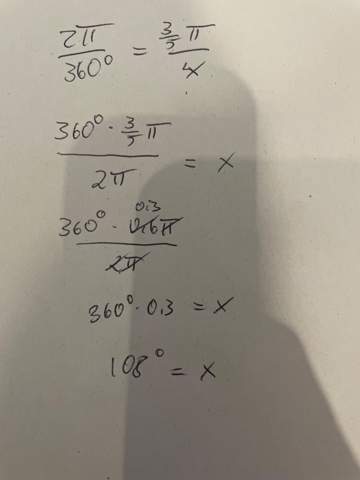 2π/360° = 3/5 π/x
360° · 3/5 π / 2π = x
360° · 0.6π 0.3 / 2π
360° · 0.3 = x
108° = x